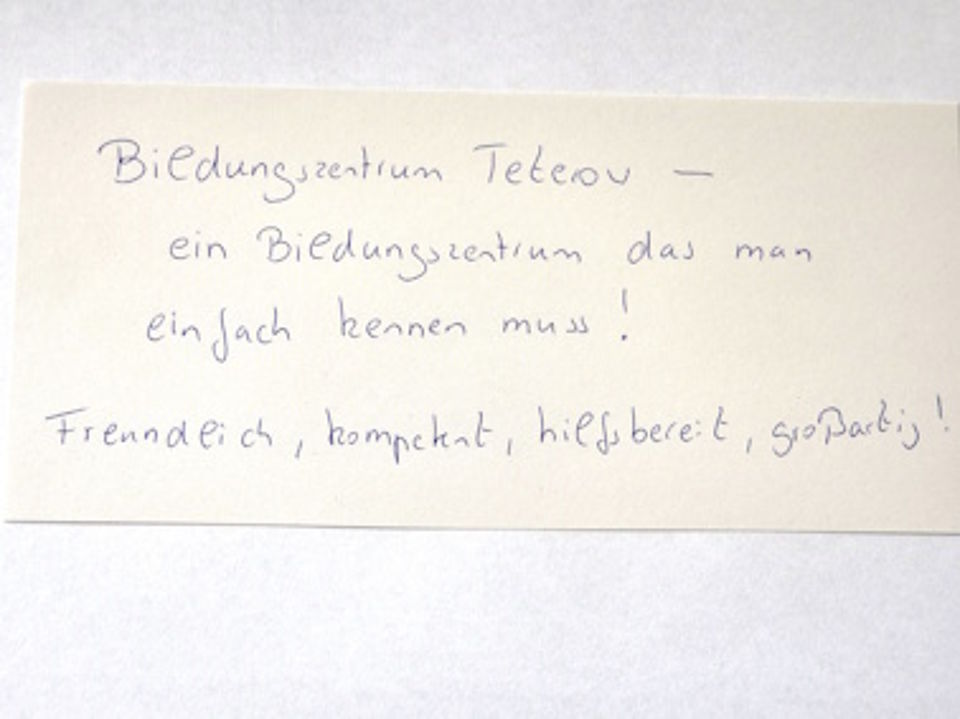 Bildungszentrum Teterow —
ein Bildungszentrum das man
einfach kennen muss!
Freundlich, kompetent, hilfsbereit, großartig!